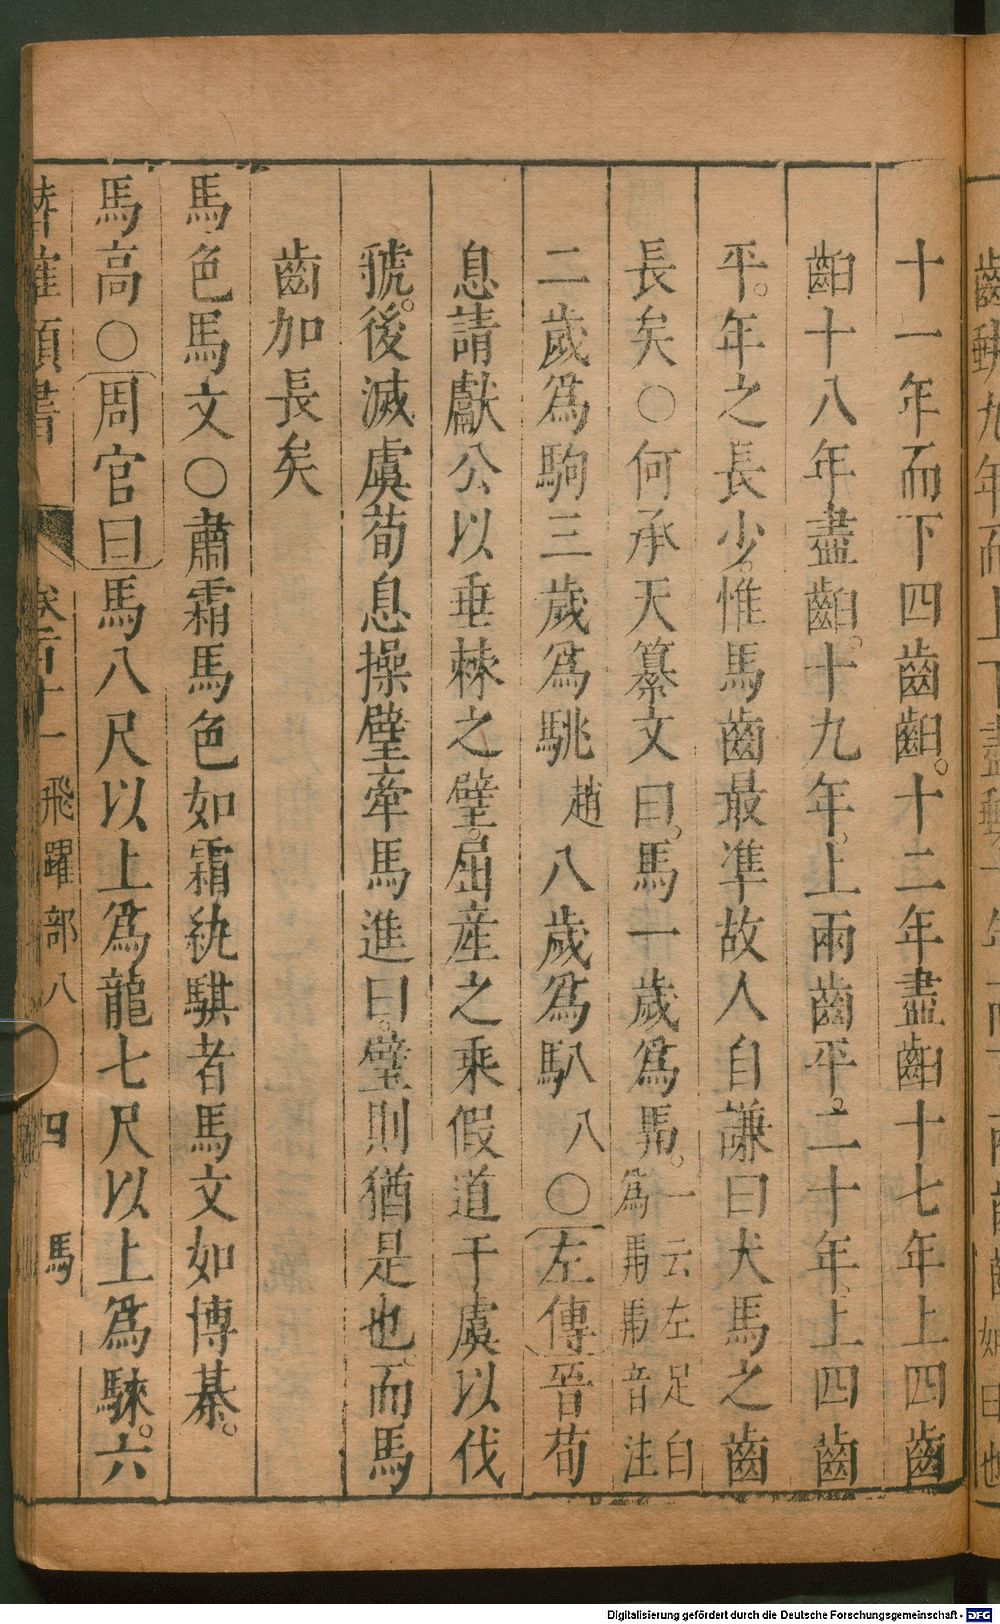 十一年而下四齒䶦。十二年盡䶦十七年上四齒
齨十八年盡齨。十九年。上兩齒平。二十年。上四齒
平。年之長少。惟馬齒最準故人自謙曰犬馬之齒
長矣○何承天纂文曰。馬一歲爲馬。一云左足白爲馬馬音注
二歲爲駒三歲爲駣趙八歲爲馸八○左傳晉荀
息請獻公以垂棘之璧。屈産之乘假道于虞以伐
虢。後滅虞荀息操璧牽馬進曰。璧則猶是也。而馬
齒加長矣
馬色馬文○肅霜馬色如霜紈騏者馬文如博棊。
馬高○周官曰馬八尺以上爲龍七尺以上爲騋。六
潛確類書 卷百十一 飛躍部八 四 馬
Digitalisierung gefördert durch die Deutsche Forschungsgemeinschaft - DFG